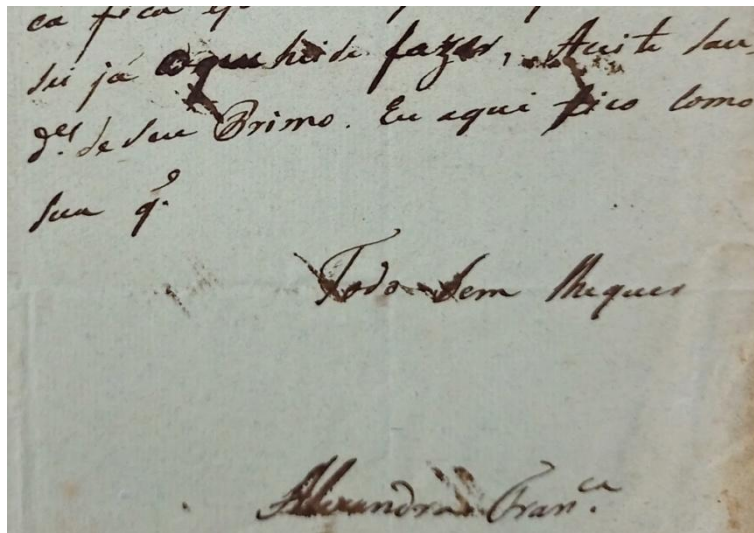 ca fica
sei já o que hei de fazer, Aceite sau-
d.es de seu Primo. Eu aqui fico como
sua q.e
Todo bem lhe quer
Alexandra Fran.ca